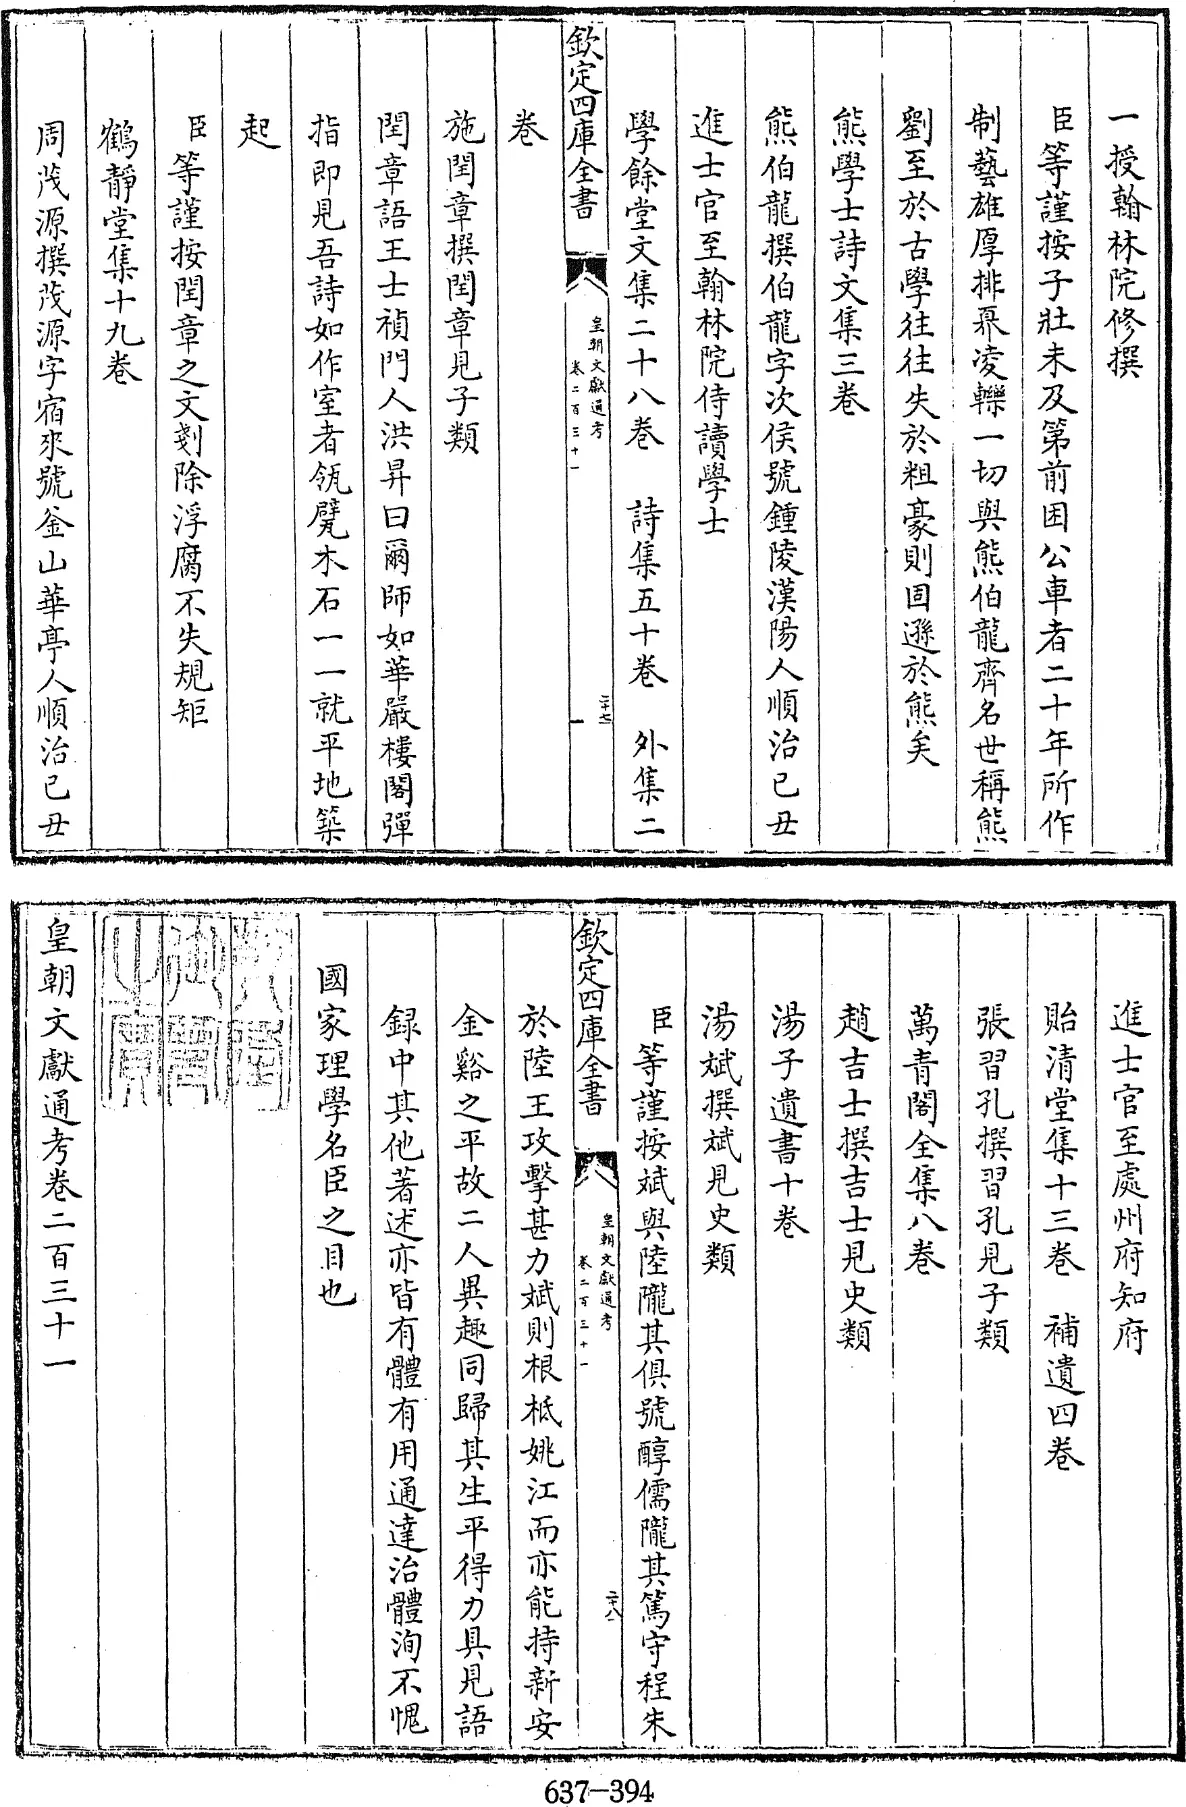 一授翰林院修撰
臣等謹按子壯未及第前困公車者二十年所作
制藝雄厚排奡凌轢一切與熊伯龍齊名世稱熊
劉至於古學往往失於粗豪則固遜於熊矣
熊學士詩文集三卷
熊伯龍撰伯龍字次侯號鍾陵漢陽人順治己丑
進士官至翰林院侍讀學士
學餘堂文集二十八卷　詩集五十卷　外集二
欽定四庫全書
皇朝文獻通考
卷二百三十一
二十七
卷
施閏章撰閏章見子類
閏章語王士禎門人洪昇曰爾師如華嚴樓閣彈
指即見吾詩如作室者瓴甓木石一一就平地築
起
臣等謹按閏章之文剗除浮腐不失規矩
鶴靜堂集十九卷
周茂源撰茂源字宿來號釜山華亭人順治己丑
進士官至處州府知府
貽清堂集十三卷　補遺四卷
張習孔撰習孔見子類
萬青閣全集八卷
趙吉士撰吉士見史類
湯子遺書十卷
湯斌撰斌見史類
臣等謹按斌與陸隴其俱號醇儒隴其篤守程朱
欽定四庫全書
皇朝文獻通考
卷二百三十一
二十八
於陸王攻擊甚力斌則根柢姚江而亦能持新安
金谿之平故二人異趣同歸其生平得力具見語
録中其他著述亦皆有體有用通達治體洵不愧
國家理學名臣之目也
乾隆
御覽
之寶
皇朝文獻通考卷二百三十一
637-394